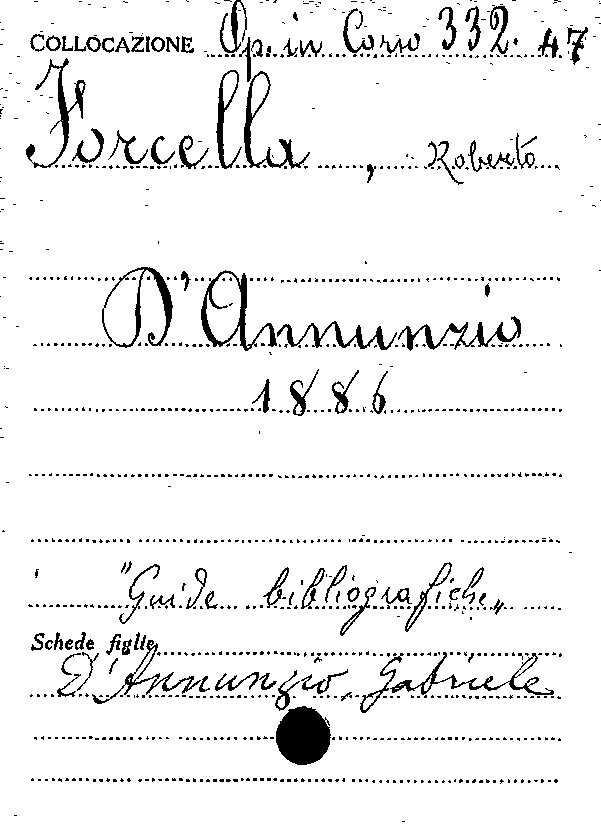 COLLOCAZIONE Op. in Corso 332. 47
Forcella, Roberto
D'Annunzio
1886
"Guide bibliografiche„
Schede figlie
D'Annunzio, Gabriele